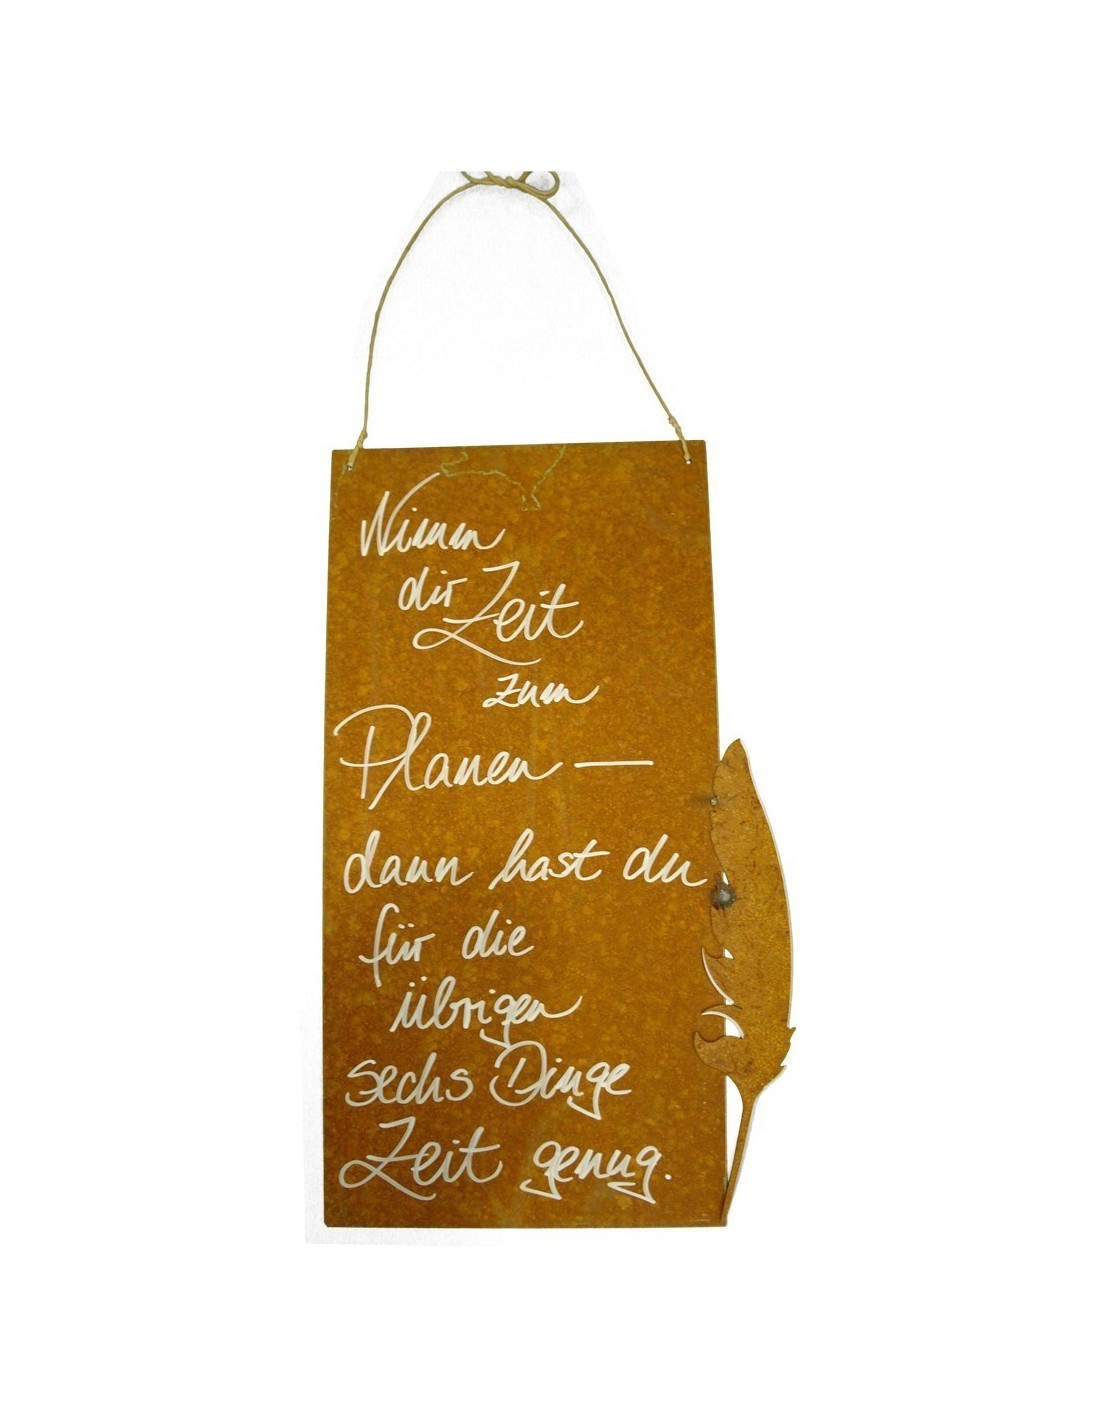 Nimm
dir Zeit
zum
Planen —
dann hast du
für die
übrigen
sechs Dinge
Zeit genug.